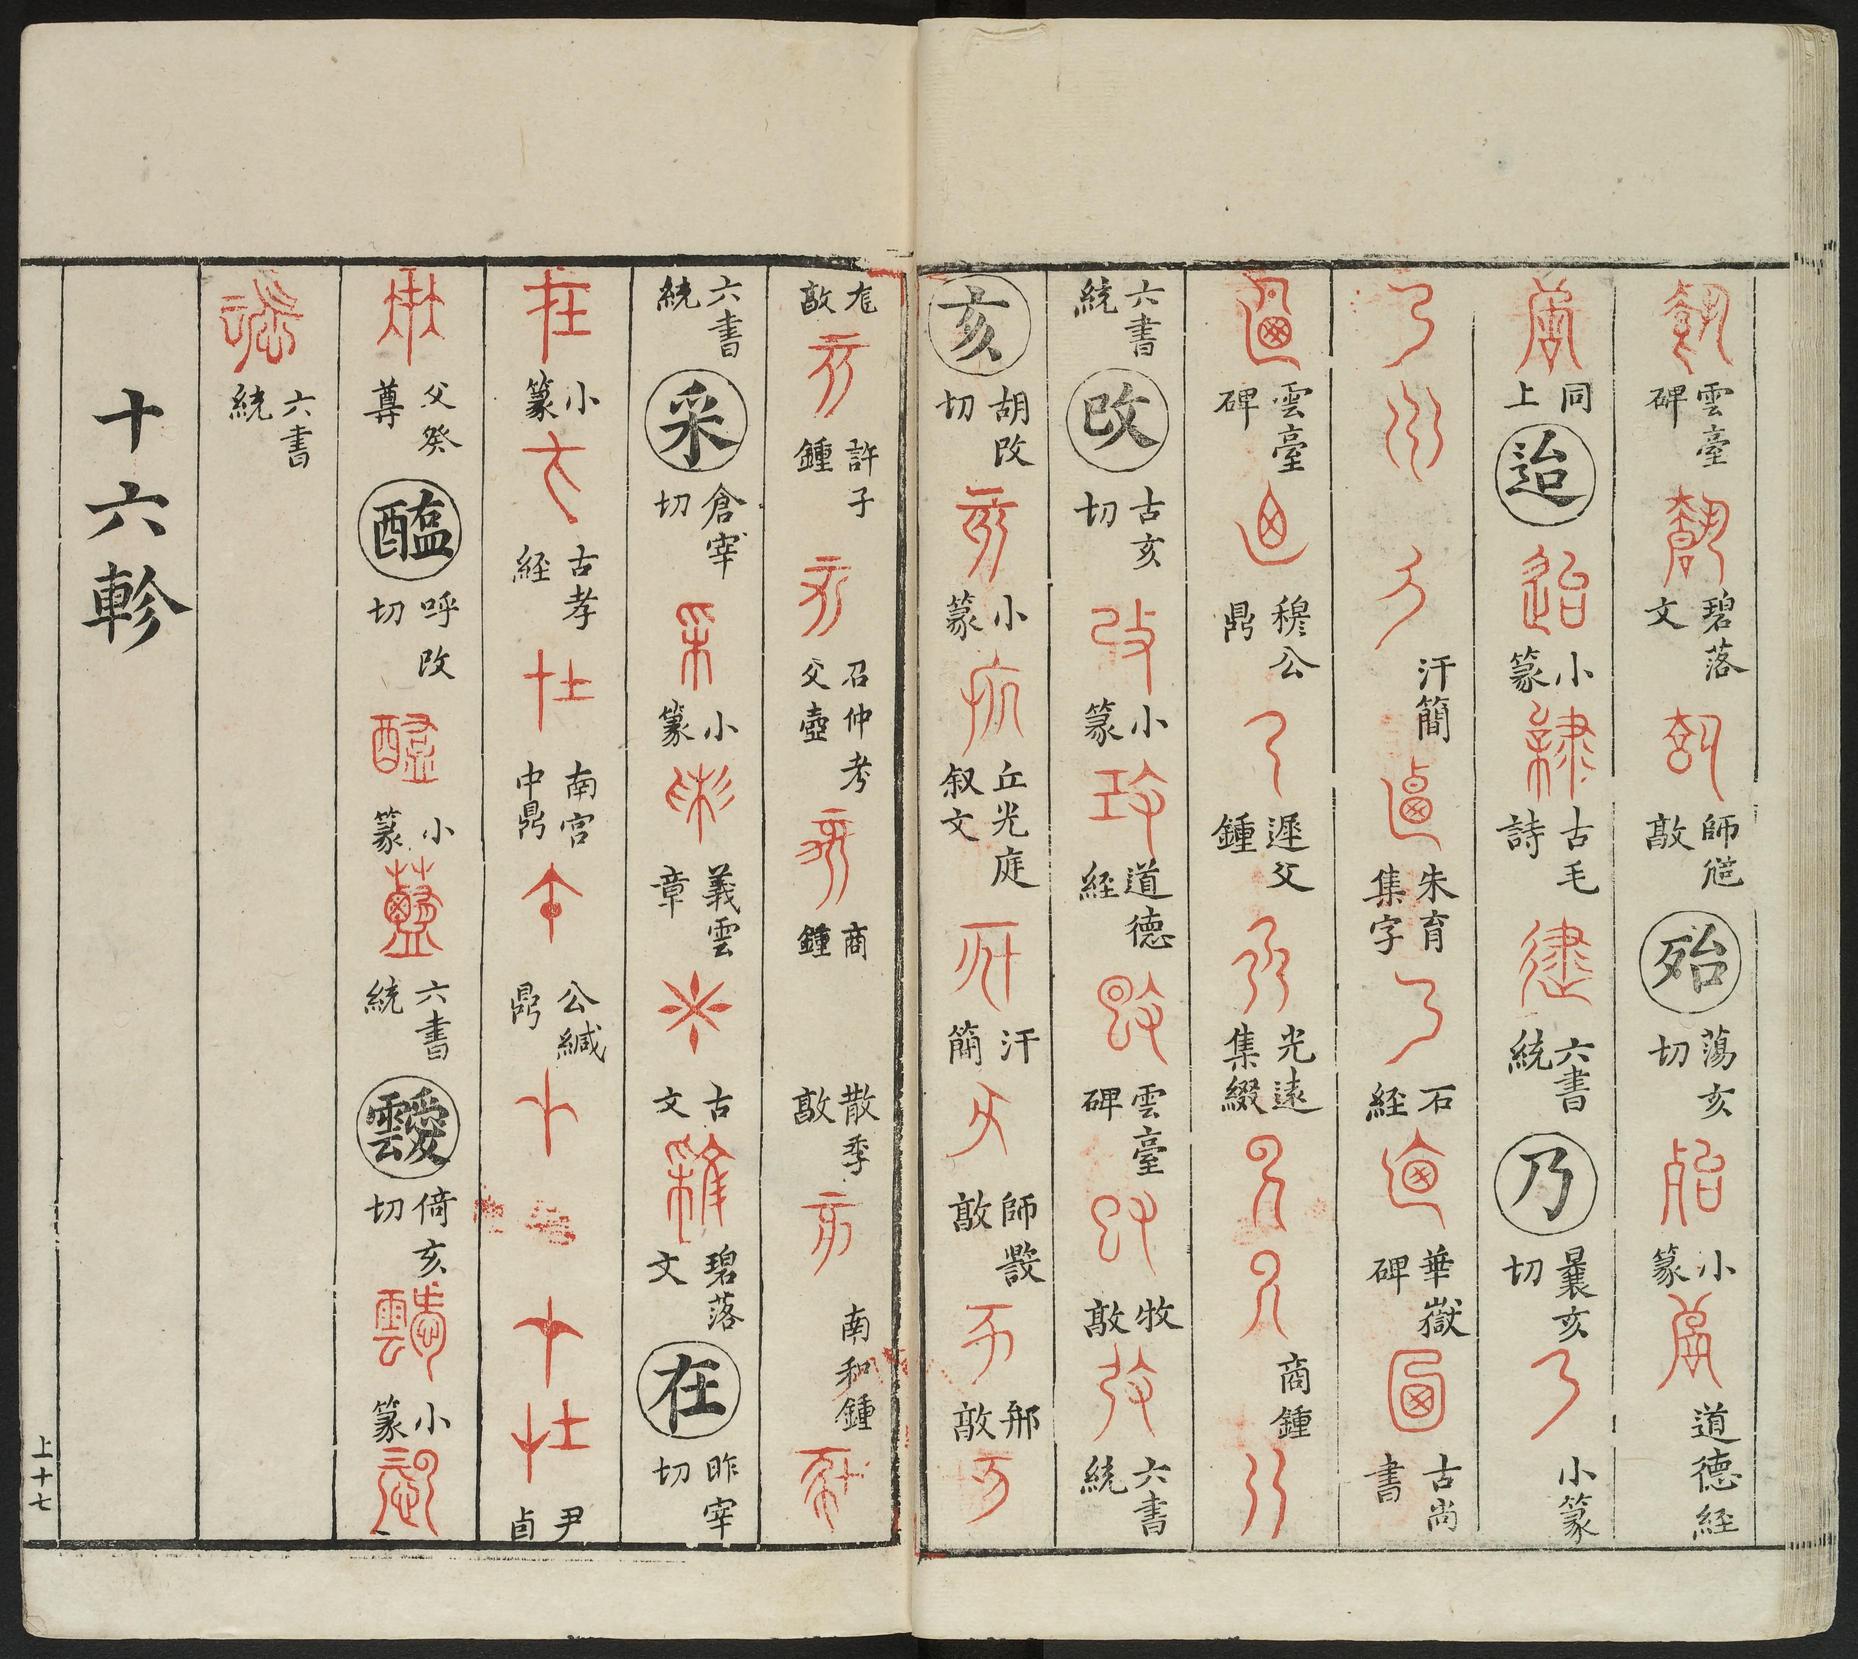 雲臺碑 碧落文 師𩛥敦 殆 蕩亥切 小篆 道德經
同上 迨 小篆 古毛詩 六書統 乃 曩亥切 小篆
汗簡 朱育集字 石經 華嶽碑 古尚書
雲臺碑 穆公鼎 遲父鍾 光遠集綴 商鍾
六書統 改 古亥切 小篆 道德經 雲臺碑 牧敦 六書統
亥 胡改切 小篆 丘光庭叙文 汗簡 師㝨敦 邢敦
敦 許子鍾 召仲考父壺 商鍾 散季敦 南和鍾
六書統 采 倉宰切 小篆 義雲章 古文 碧落文 在 昨宰切
小篆 古孝經 南宮中鼎 公緘鼎 尹卣
父癸尊 醢 呼改切 小篆 六書統 靉 倚亥切 小篆
六書統
十六軫
上十七